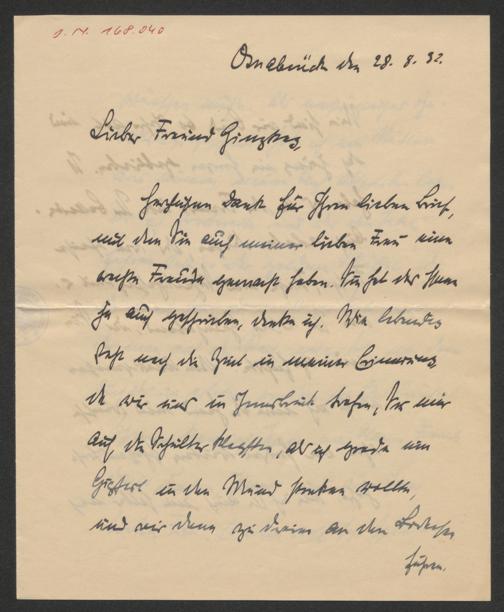 J. N. 168.040
Osnabrück den 28. 8. 32.
Lieber Freund Ginzkey,
Herzlichen Dank für Ihren lieben Brief,
mit dem Sie auch meiner lieben Frau eine
rechte Freude gemacht haben. Sie hat das Ihnen
ja auch geschrieben, denke ich. Wie lebendig
steht noch die Zeit in meiner Erinnerung
da wir uns in Innsbruck trafen, Sie mir
auf die Schulter klopften, als ich grade ein
in den Mund stecken wollte,
und wir dann zu dreien an den Bodensee
fuhren.